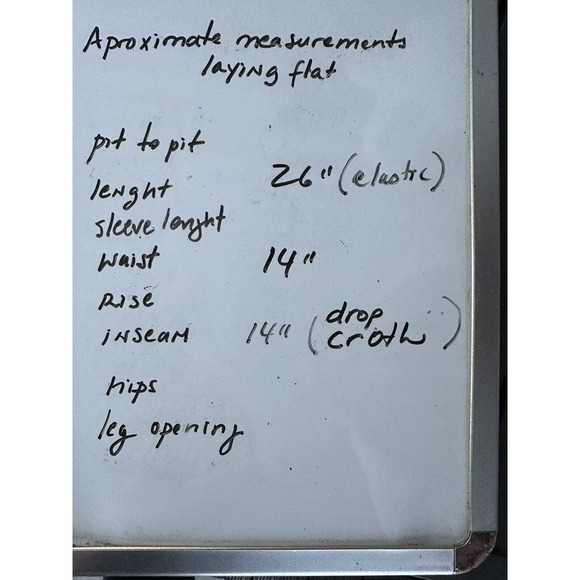 Aproximate measurements
laying flat
pit to pit
lenght 26" (elastic)
sleeve lenght
waist 14"
RISE
iNSeaM 14" (drop
croth)
hips
leg opening